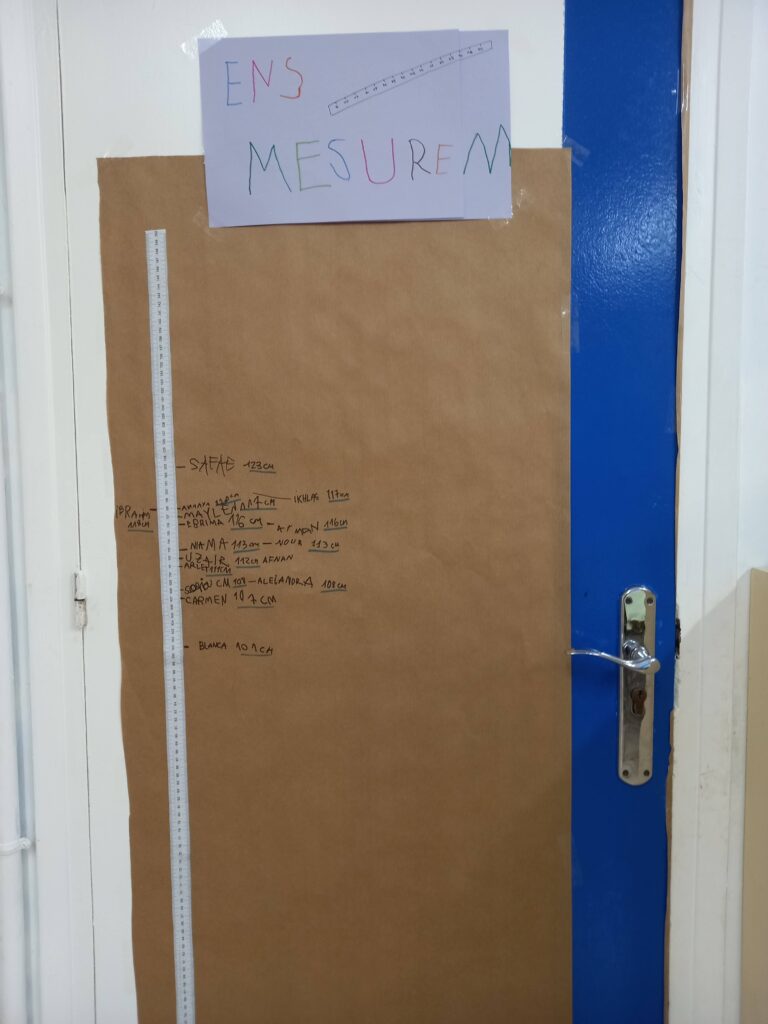 ENS
MESUREM
SAFAE 123 CM
IKHLAS 117 CM
MAYLEN 117 CM
118 CM
EBRIMA 116 CM - 116 CM
NIAMA 113 cm - NOUR 113 CM
UZAIR 112 CM AFNAN
ARLET 111 CM
108 - ALEJANDRA 108 CM
CARMEN 107 CM
BLANCA 101 CM